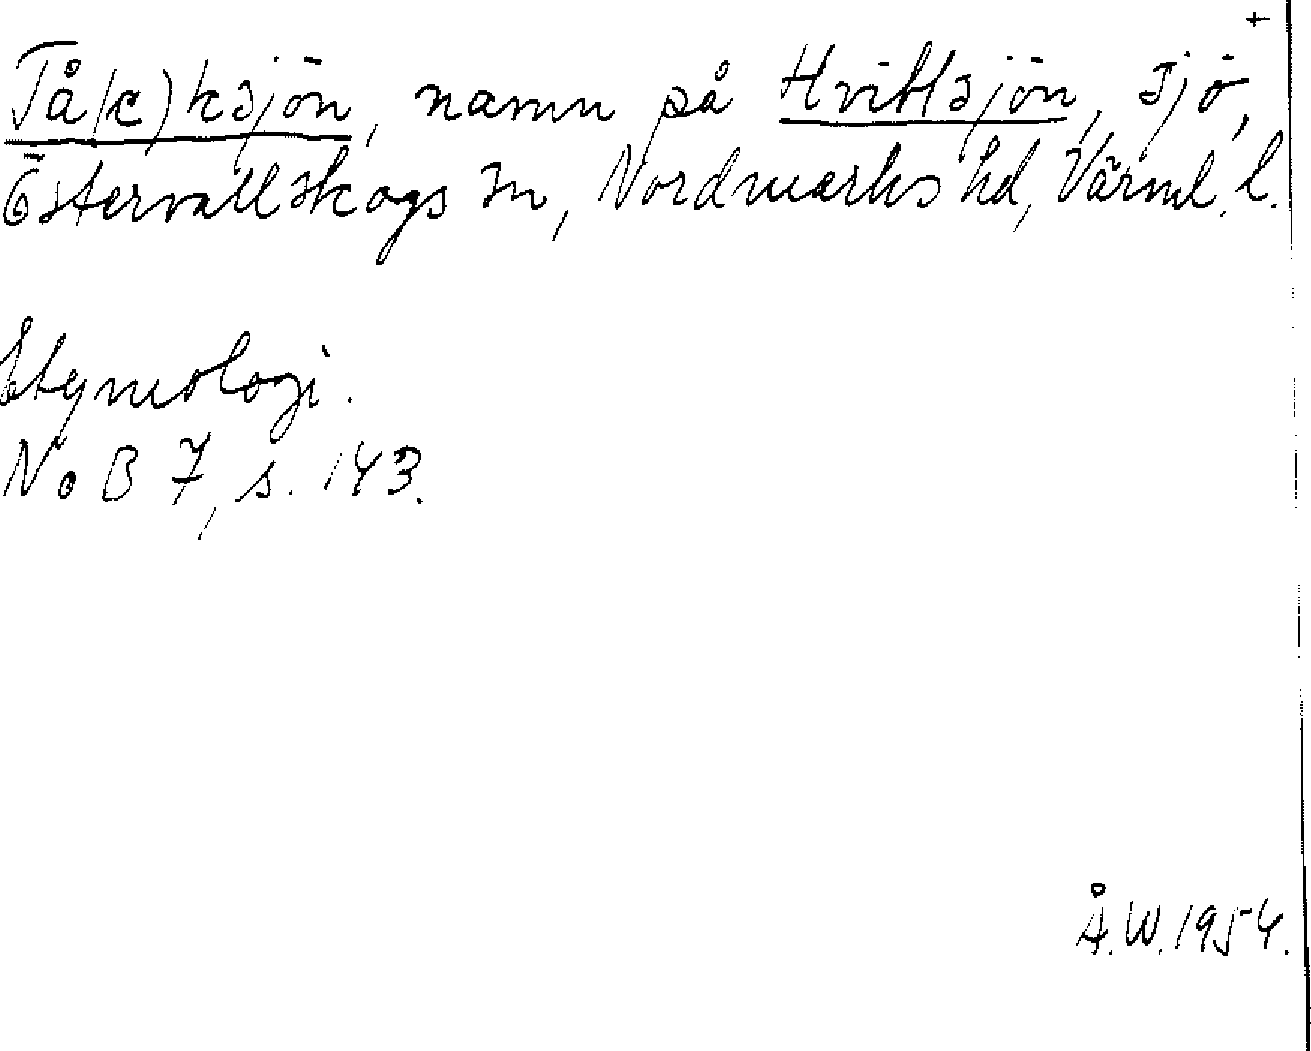 +
Tå(c)ksjön, namn på Hvittsjön, sjö,
Östervallskogs sn, Nordmarks hd, Värml. l.
Etymologi.
NoB 7, s. 143.
Å.W. 1954.